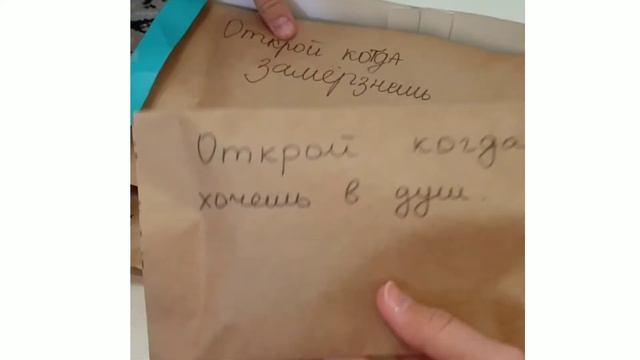 Открой когда
замёрзнешь
Открой когда
хочешь в душ.